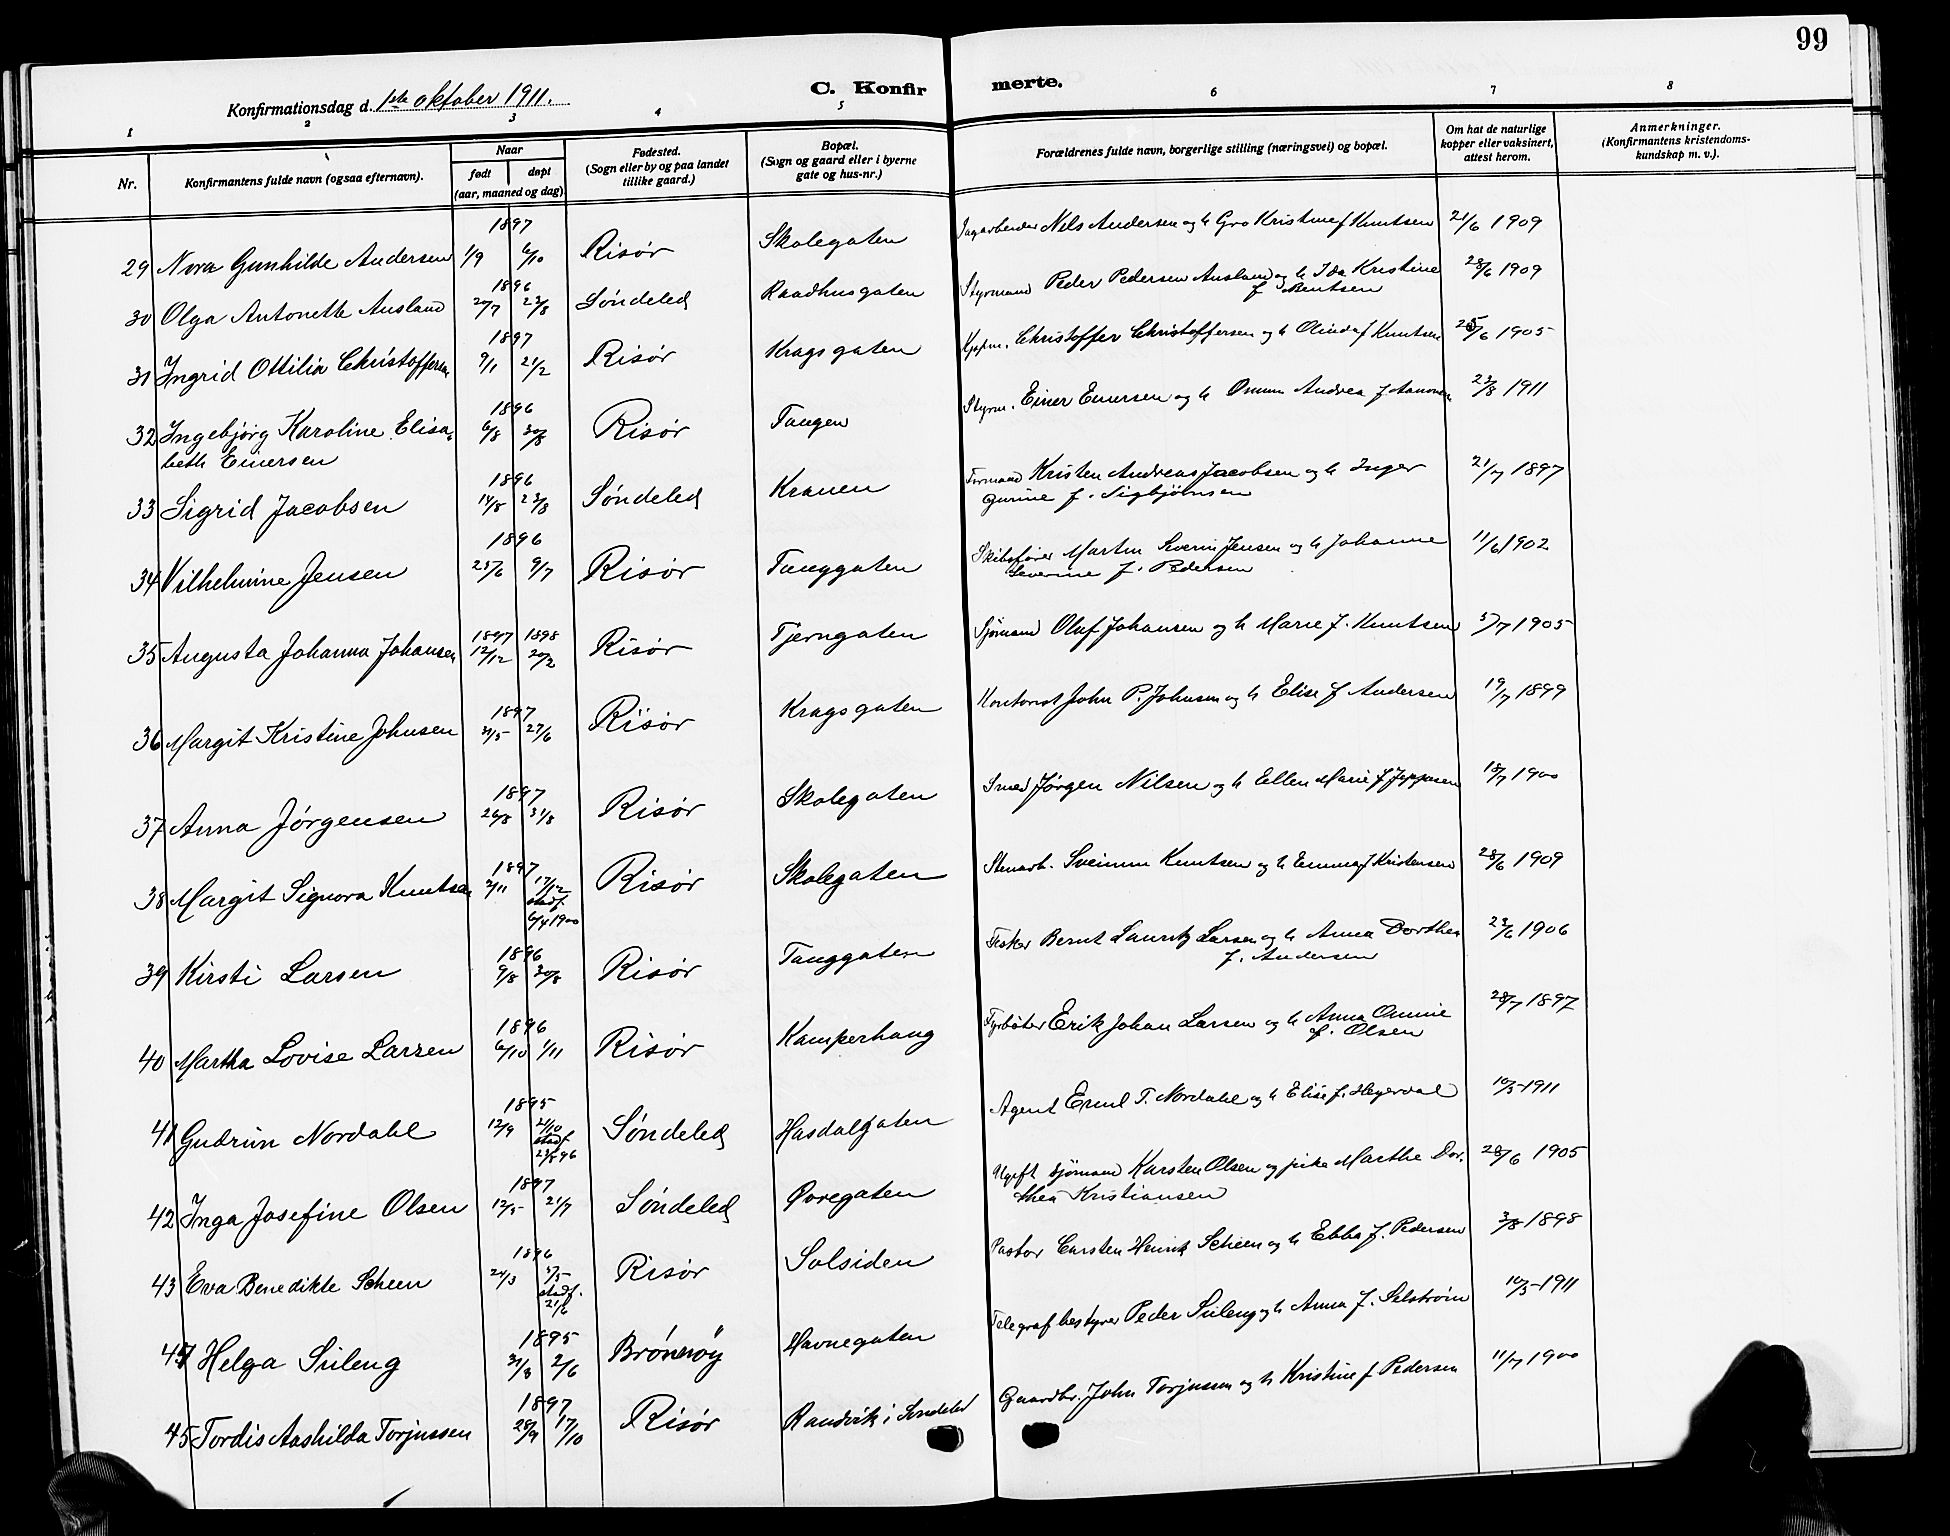 99
C. Konfirmerte.
Konfirmationsdag d. 1ste oktober 1911.
1 2 3 4 5 6 7 8
Nr.
Konfirmantens fulde navn (ogsaa efternavn).
Naar
født døpt
(aar, maaned og dag)
Fødested.
(Sogn eller by og paa landet
tillike gaard.)
Bopæl.
(Sogn og gaard eller i byerne
gate og hus-nr.)
Forældrenes fulde navn, borgerlige stilling (næringsvei) og bopæl.
Om hat de naturlige
kopper eller vaksinert,
attest herom.
Anmerkninger.
(Konfirmantens kristendoms-
kundskap m. v.).
1897
29 Nora Gunhilde Andersen 1/9 6/10 Risør Skolegaten Nils Andersen og h Gro Kristine f Knutsen 21/6 1909
1896
30 Olga Antonette Ausland 20/7 23/8 Søndeled Raadhusgaten Styrmand Peder Pedersen Ausland og h Ida Kristine 28/6 1909
f Bentsen
1897
31 Ingrid Ottilia Christoffersen 9/1 21/2 Risør Kragsgaten Christoffer Christoffersen og h Olinda f Knutsen 1905
1896
32 Ingebjørg Karoline Elisa- 6/8 30/8 Risør Tangen Styrm. Einer Einersen og h Andrea f 23/8 1911
beth Einersen
1896
33 Sigrid Jacobsen 14/8 23/8 Søndeled Kranen Kristen Andreas Jacobsen og h Inger 21/7 1897
Gurine f. Sigbjørnsen
1896
34 Vilhelmine Jensen 25/6 9/7 Risør Tanggaten Skibsfører Martin Severin Jensen og h Johanne 11/6 1902
Severine f. Pedersen
1897 1898
35 Augusta Johanna Johansen 12/12 20/2 Risør Tjerngaten Sjømand Oluf Johansen og h Marie f. Knutsen 5/7 1905
1897
36 Margit Kristine Johnsen 31/5 27/6 Risør Kragsgaten Kontorist John P. Johnsen og h Elise f Andersen 19/7 1899
1897
37 Anna Jørgensen 26/8 Risør Skolegaten Smed Jørgen Nilsen og h Ellen Marie f Jeppesen 18/7 1900
1897
38 Margit Signora Knutsen 2/11 17/12 Risør Skolegaten Stenarb. Knutsen og h Emma f Kristensen 28/6 1909
stadf.
6/4 1900
1896
39 Kirsti Larsen 9/8 30/8 Risør Tanggaten Fisker Bernt Lauritz Larsen og h Anna Dorthea 23/6 1906
f. Andersen
1896
40 Martha Lovise Larsen 6/10 1/11 Risør Kamperhaug Fyrbøter Erik Johan Larsen og h Anna 28/7 1897
f. Olsen
1895
41 Gudrun Nordahl 12/9 21/10 Søndeled Hasdalgaten Agent Emil T. Nordahl og h Elise f. Heyerdal 10/5 1911
stadf.
23/8 96
1897
42 Inga Josefine Olsen 12/5 21/7 Søndeled Øvregaten Ugift Sjømand Karsten Olsen og pike Marthe Dor- 28/6 1905
thea Kristiansen
1896
43 Eva Benedikte Scheen 24/3 3/5 Risør Solsiden Pastor Carsten Henrik Scheen og h Ebba f. Pedersen 3/8 1898
stadf.
21/6
1895
44 Helga Süleng 31/3 2/6 Brønnøy Havnegaten Telegrafbestyrer Peder Süleng og h Anna f. Selstrøm 10/5 1911
1897
45 Tordis Aashilda Torjussen 28/9 17/10 Risør Randvik i Søndeled Gaardbr. John Torjussen og h Kristine f Pedersen 11/7 1900